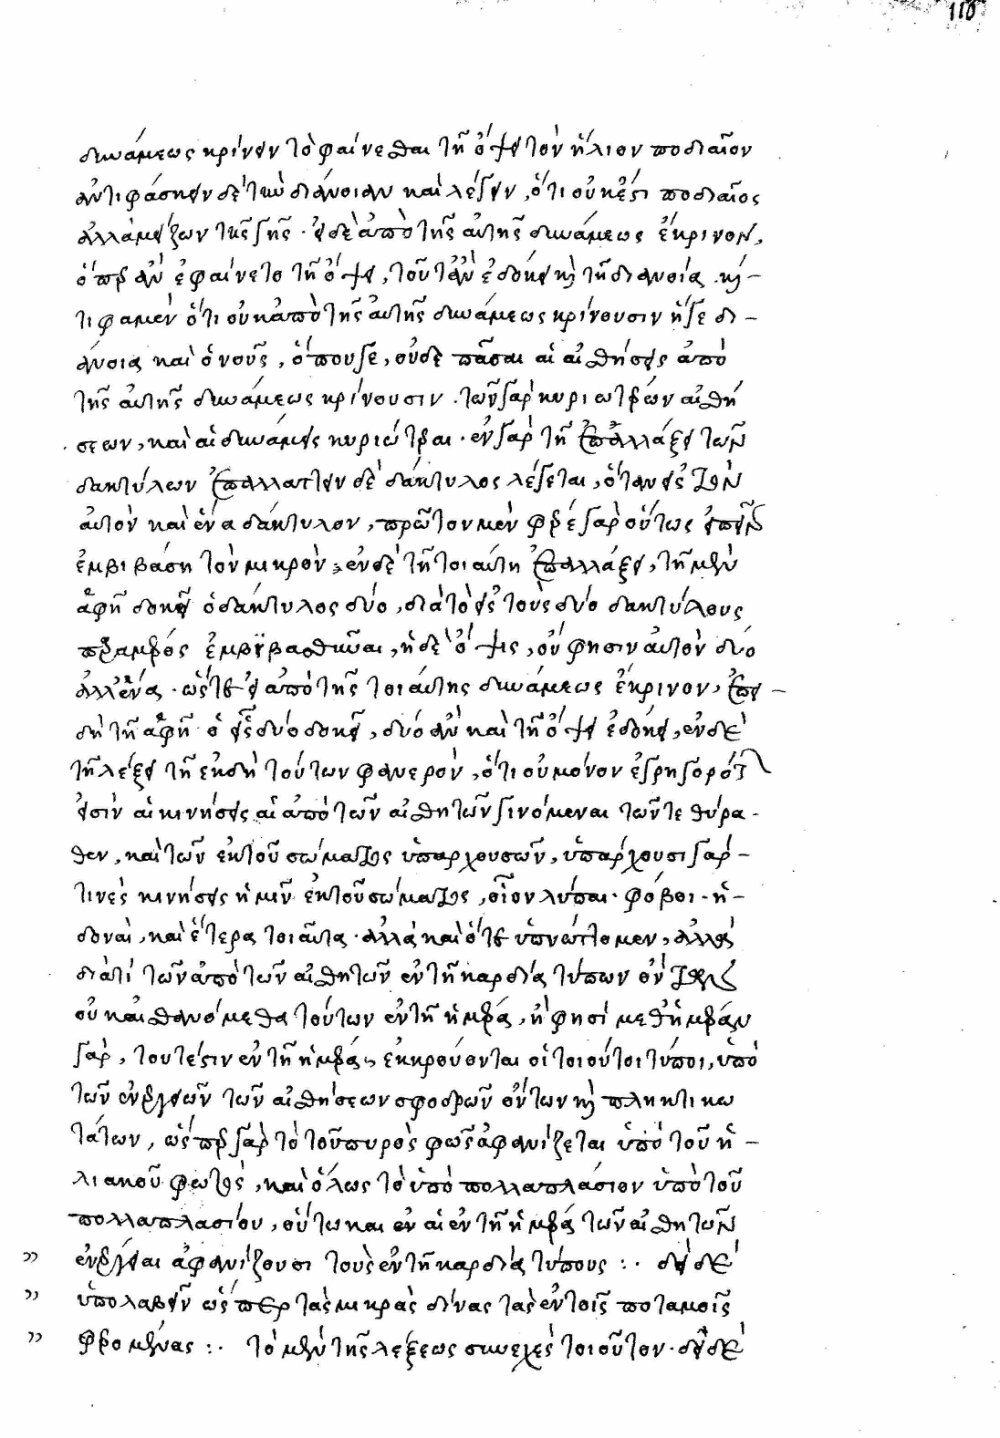 110
δυνάμεως κρίνειν τὸ φαίνεσθαι τῆ ὄψει τὸν ἥλιον ποδιαῖον
ἀντιφάσκειν δὲ τὴν διάνοιαν καὶ λέγειν, ὅτι οὐκ ἔστι ποδιαῖος
ἀλλὰ μείζων τῆς γῆς· εἰ δὲ ἀπὸ τῆς αὐτῆς δυνάμεως ἔκρινον,
ὅπερ ἂν ἐφαίνετο τῆ ὄψει, τοῦτ' ἂν ἐδόκει καὶ τῆ διανοία. καὶ
τι φαμὲν ὅτι οὐκ ἀπὸ τῆς αὐτῆς δυνάμεως κρίνουσιν ἥ γε δι-
άνοια καὶ ὁ νοῦς, ὅπου γε, οὐδὲ πᾶσαι αἱ αἰσθήσεις ἀπὸ
τῆς αὐτῆς δυνάμεως κρίνουσιν. τῶν γὰρ κυριωτέρων αἰσθή
σεων, καὶ αἱ δυνάμεις κυριώτεραι· ἐν γὰρ τῆ ἐπαλλάξει τῶν
δακτύλων ἐπαλλάττειν δὲ δάκτυλος λέγεται, ὅταν εἰς τὸν
αὐτὸν καὶ ἕνα δάκτυλον, πρῶτον μὲν φέρε γὰρ οὕτως εἰπεῖν
ἐμβιβάση τὸν μικρὸν, ἐν δὲ τῆ τοιαύτη ἐπαλλάξει, τῆ μὲν
ἁφῆ δοκεῖ ὁ δάκτυλος δύο, διὰ τὸ εἰς τοὺς δύο δακτύλους
ἐμβϊβασθῆναι, ἡ δὲ ὄψις, οὔ φησιν αὐτὸν δύο
ἀλλ' ἕνα. ὥστε εἰ ἀπὸ τῆς τοιαύτης δυνάμεως ἔκρινον, ἐπει-
δὴ τῆ ἁφῆ ὁ εἷς δύο δοκεῖ, δύο ἂν καὶ τῆ ὄψει ἐδόκει, ἐν δὲ
τῆ λέξει τῆ ἐκ δὴ τούτων φανερὸν, ὅτι οὐ μόνον ἐγρηγορότων
εἰσὶν αἱ κινήσεις αἱ ἀπὸ τῶν αἰσθητῶν γινόμεναι τῶν τε θύρα-
θεν, καὶ τῶν ἐκ τοῦ σώματος ὑπαρχουσῶν, ὑπάρχουσι γάρ-
τινὲς κινήσεις ἡμῖν ἐκ τοῦ σώματος, οἷον λύπαι· φόβοι· ἡ-
δοναὶ, καὶ ἕτερα τοιαῦτα· ἀλλὰ καὶ ὅτε ὑπνώττομεν, ἀλλὰ
διατί τῶν ἀπὸ τῶν αἰσθητῶν ἐν τῆ καρδία τύπων ὄντων
οὐκ αἰσθανόμεθα τούτων ἐν τῆ ἡμέρα, ἤ φησί μεθ' ἡμέραν
γὰρ, τουτέστιν ἐν τῆ ἡμέρα, ἐκκρούονται οἱ τοιοῦτοι τύποι, ὑπὸ
τῶν ἐνεργειῶν τῶν αἰσθήσεων σφοδρῶν ὄντων καὶ πληκτικω
τάτων, ὥσπερ γὰρ τὸ τοῦ πυρὸς φῶς ἀφανίζεται ὑπὸ τοῦ ἡ-
λιακοῦ φωτὸς, καὶ ὅλως τὸ ὑπὸ πολλαπλάσιον ὑπὸ τοῦ
πολλαπλασίου, οὕτω καὶ ἐν αἱ ἐν τῆ ἡμέρα τῶν αἰσθητῶν
" ἐνέργειαι ἀφανίζουσι τοὺς ἐν τῆ καρδία τύπους :. δεῖ δὲ
" ὑπολαβεῖν ὥσπερ τὰς μικρὰς δίνας τὰς ἐν τοῖς ποταμοῖς
" φερομένας :. τὸ μὲν τῆς λέξεως συνεχὲς τοιοῦτον· δεῖ δὲ